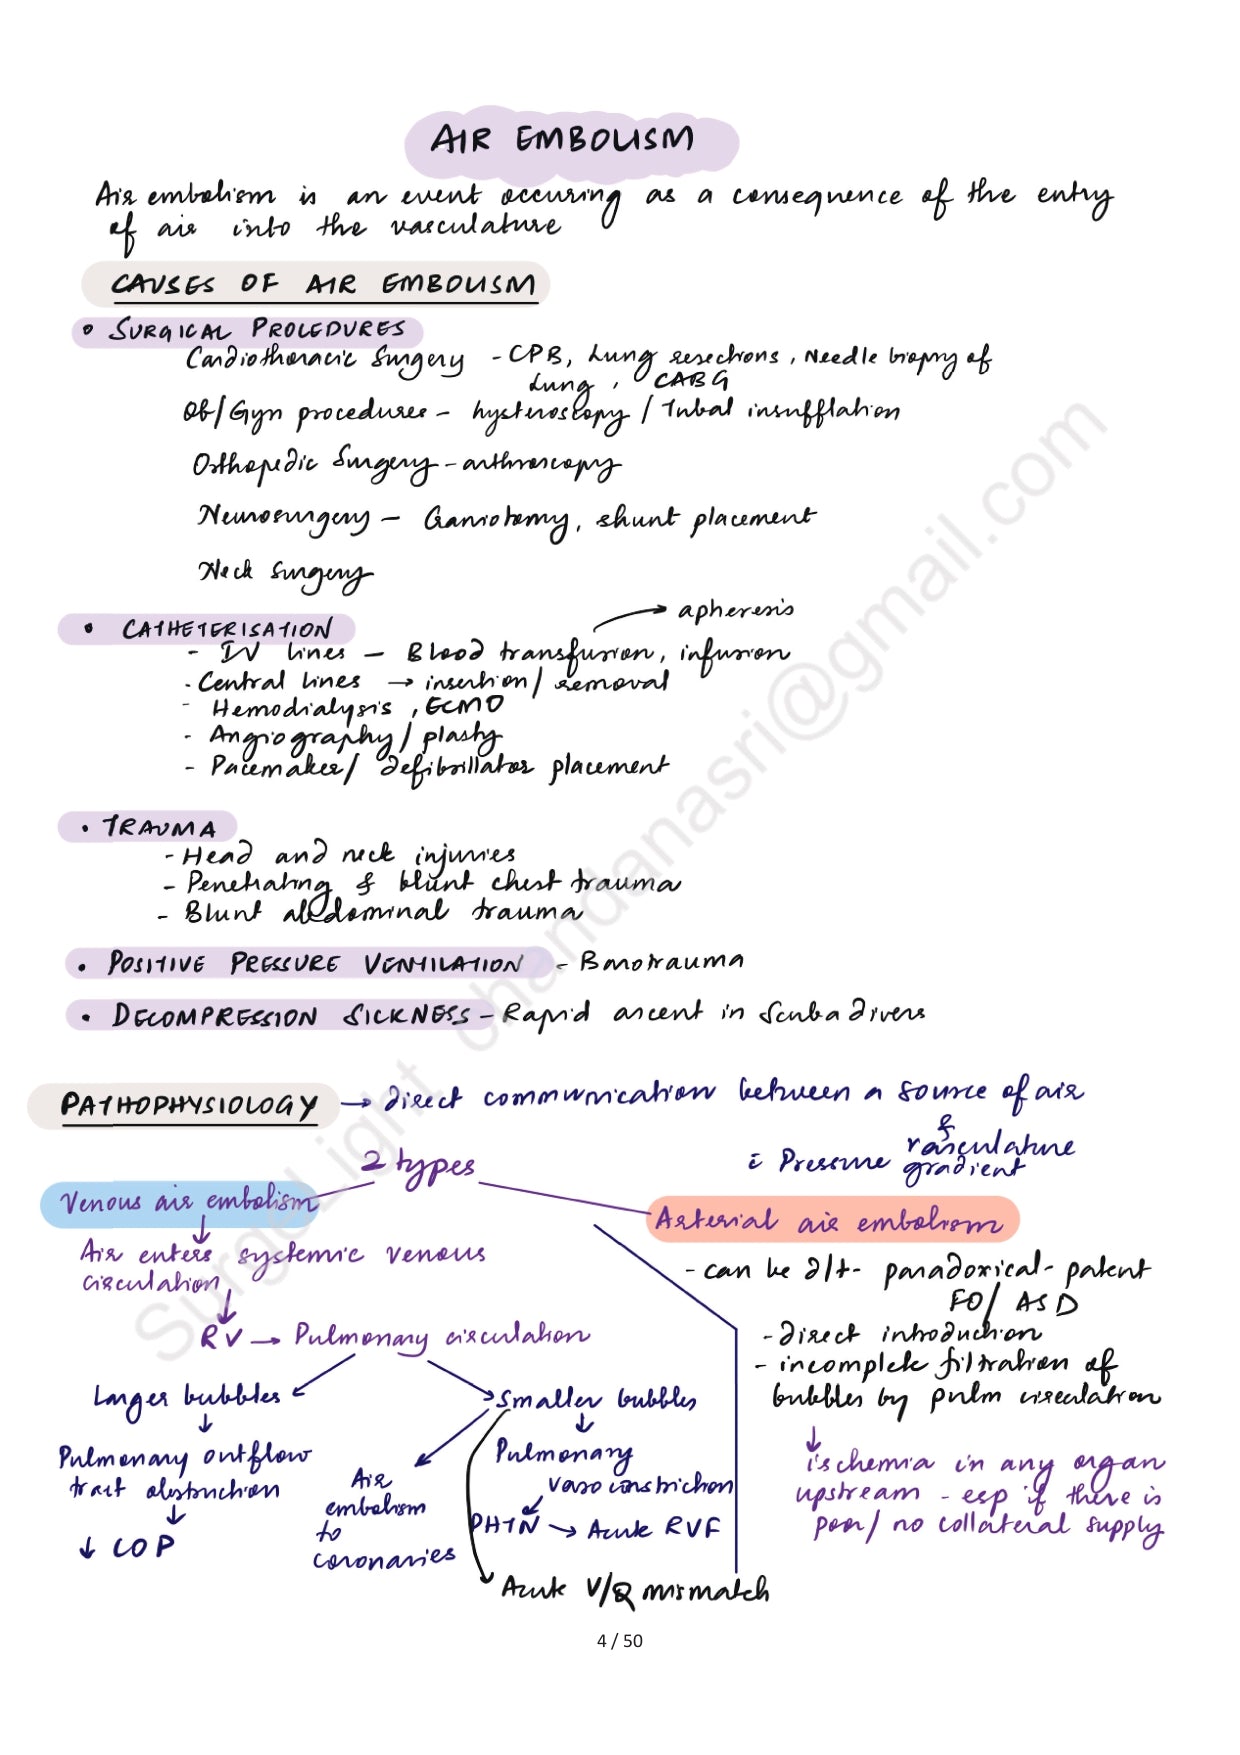 AIR EMBOLISM
Air embolism is an event occuring as a consequence of the entry
of air into the vasculature
CAUSES OF AIR EMBOLISM
• SURGICAL PROCEDURES
Cardiothoracic Surgery - CPB, Lung resections, Needle biopsy of
Lung, CABG
Ob/Gyn procedures - hysteroscopy / Tubal insufflation
Orthopedic Surgery - arthroscopy
Neurosurgery - Craniotomy, shunt placement
Neck Surgery
→ apheresis
• CATHETERISATION
- IV lines - Blood transfusion, infusion
- Central lines → insertion/ removal
- Hemodialysis, ECMO
- Angiography/ plasty
- Pacemaker/ defibrillator placement
• TRAUMA
- Head and neck injuries
- Penetrating & blunt chest trauma
- Blunt abdominal trauma
• POSITIVE PRESSURE VENTILATION - Barotrauma
• DECOMPRESSION SICKNESS - Rapid ascent in Scuba divers
PATHOPHYSIOLOGY → direct communication between a source of air
&
vasculature
c̄ Pressure gradient
2 types
Venous air embolism
Arterial air embolism
↓
Air enters systemic venous
circulation
↓
RV → Pulmonary circulation
- can be d/t - paradoxical - patent
FO/ ASD
- direct introduction
- incomplete filtration of
bubbles by pulm circulation
↓
ischemia in any organ
upstream - esp if there is
poor/ no collateral supply
Larger bubbles
↓
Pulmonary outflow
tract obstruction
↓
↓ COP
Smaller bubbles
↓
Pulmonary
vasoconstriction
PHTN → Acute RVF
Air
embolism
to
coronaries
Acute V/Q mismatch
SurgeLight chandanasri@gmail.com
4 / 50